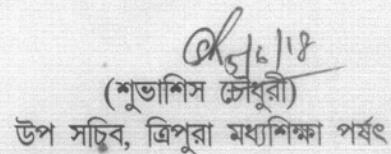 5/6/18
(শুভাশিস চৌধুরী)
উপ সচিব, ত্রিপুরা মধ্যশিক্ষা পর্ষৎ